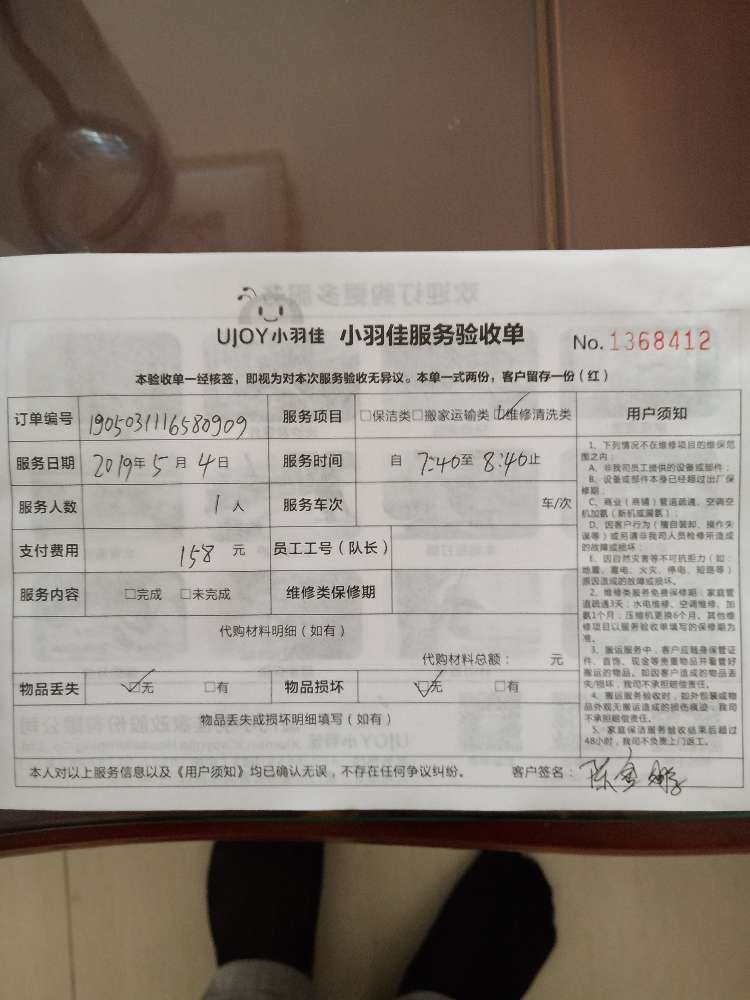 UJOY小羽佳 小羽佳服务验收单 No.1368412
本验收单一经核签，即视为对本次服务验收无异议。本单一式两份，客户留存一份（红）
订单编号 1905031116580909 服务项目 □保洁类□搬家运输类☑维修清洗类 用户须知
服务日期 2019年5月4日 服务时间 自 7:40至 8:40止
服务人数 1人 服务车次 车/次
支付费用 158 元 员工工号（队长）
服务内容 □完成 □未完成 维修类保修期
代购材料明细（如有）
代购材料总额： 元
物品丢失 ☑无 □有 物品损坏 ☑无 □有
物品丢失或损坏明细填写（如有）
本人对以上服务信息以及《用户须知》均已确认无误，不存在任何争议纠纷。 客户签名：陈
1、下列情况不在维修项目的维保范
围之内：
A、非我司员工提供的设备或部件；
B、设备或部件本身已经超过出厂保
修期；
C、商业（商铺）管道疏通、空调空
机加氨（新机或漏氨）；
D、因客户行为（擅自装卸、操作失
误等）或另请非我司人员检修所造成
的故障或损坏；
E、因自然灾害等不可抗力（如：
地震、雷电、火灾、停电、短路等）
原因造成的故障或损坏。
2、维修类服务免费保修期：家庭管
道疏通3天；水电维修、空调维修、加
氨1个月；压缩机更换6个月。其他维
修项目以服务验收单填写的保修期为
准。
3、搬运服务中，客户应随身保管证
件、首饰、现金等贵重物品并看管好
搬运的物品。如因客户造成的物品丢
失/损坏，我司不承担赔偿责任。
4、搬运服务验收时，如外包装或物
品外观无搬运造成的损伤痕迹，我司
不承担赔偿责任。
5、家庭保洁服务验收结束后超过
48小时，我司不负责上门返工。
欢迎订购更多服务